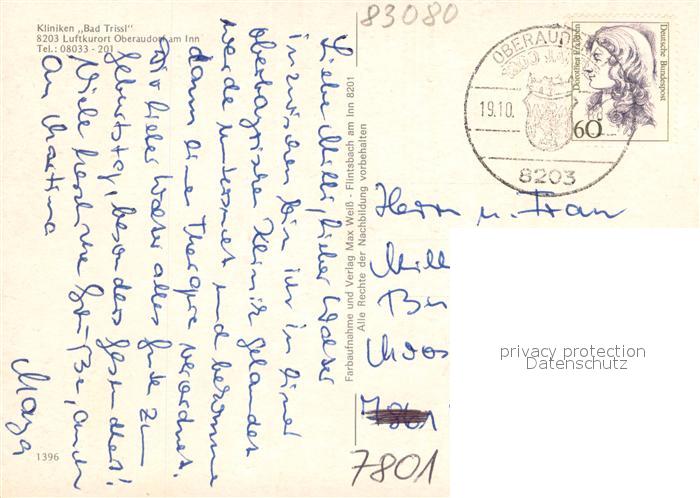 Kliniken „Bad Trissl"
8203 Luftkurort Oberaudorf am Inn
Tel.: 08033 - 201
83080
OBERAUDORF
19.10.
8203
Deutsche Bundespost
60
Liebe Milli, lieber Walter
inzwischen bin ich in einer
oberbayrischen Klinik gelandet
werde untersucht und bekomme
dann eine Therapie verordnet.
Dir lieber Walter alles Gute zum
Geburtstag, besonders Gesundheit!
Viele herzliche Grüße, auch
an Martina
Farbaufnahme und Verlag Max Weiß - Flintsbach am Inn 8201
Alle Rechte der Nachbildung vorbehalten
Herrn u. Frau
Mill
Moos
7801
1396
privacy protection
Datenschutz